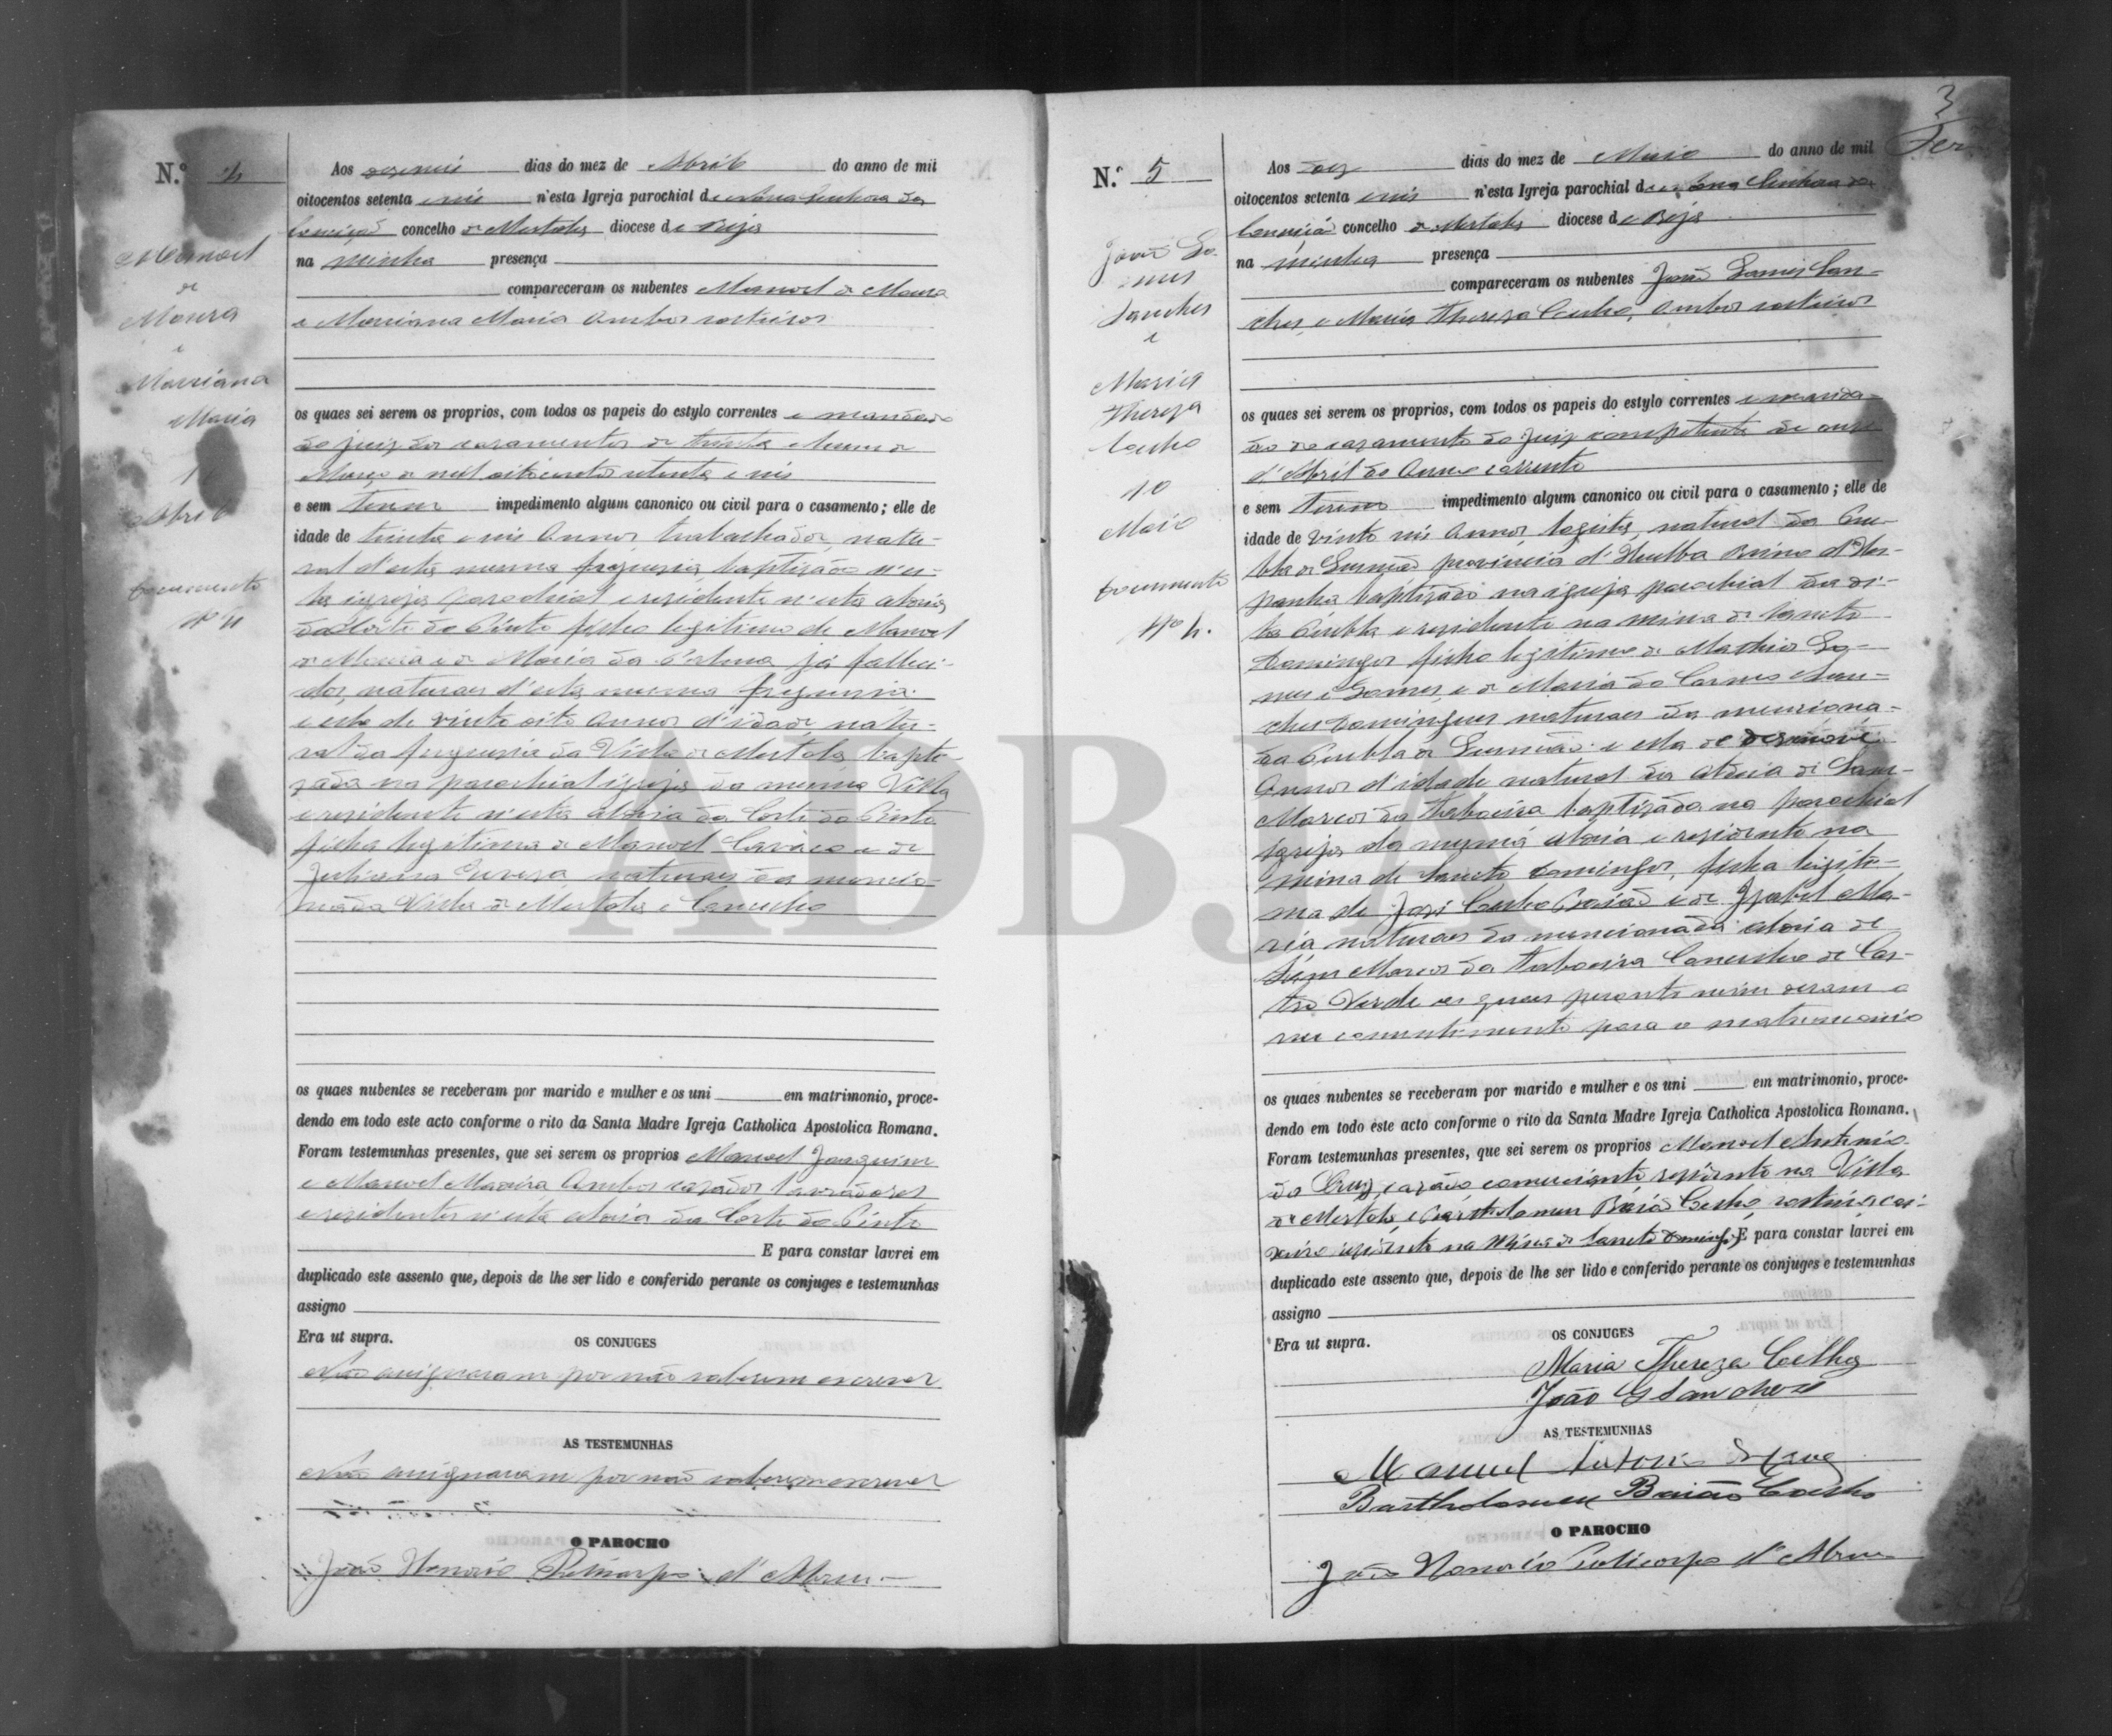 N.º 4
Manoel
de
Moura
e
Marianna
Maria
Abril
Documento
Nº 4
Aos dias do mez de Abril do anno de mil
oitocentos setenta e seis n'esta Igreja parochial de Nossa Senhora da
Conceição concelho de Mertola diocese de Beja
na minha presença
compareceram os nubentes Manoel de Moura
e Marianna Maria ambos solteiros
os quaes sei serem os proprios, com todos os papeis do estylo correntes e mandado
do juiz dos casamentos de trinta e hum de
Março de mil oitocentos setenta e seis
e sem terem impedimento algum canonico ou civil para o casamento; elle de
idade de trinta e seis annos, trabalhador, natu-
ral d'esta mesma freguesia, baptisado n'es-
ta igreja parochial e residente n'esta aldeia
da Corte do Pinto filho legitimo de Manoel
de Moura e de Maria da Palma já falleci-
dos, naturaes d'esta mesma freguesia
e ella de vinte oito annos d'idade, natu-
ral da freguesia da Villa de Mertola bapti-
zada na parochial igreja da mesma Villa
e residente n'esta aldeia da Corte do Pinto
filha legitima de Manoel e de
Juliana naturaes da mencio-
nada Villa de Mertola e Concelho
os quaes nubentes se receberam por marido e mulher e os uni em matrimonio, proce-
dendo em todo este acto conforme o rito da Santa Madre Igreja Catholica Apostolica Romana.
Foram testemunhas presentes, que sei serem os proprios Manoel Joaquim
e Manoel ambos casados lavradores
e residentes n'esta aldeia da Corte do Pinto
E para constar lavrei em
duplicado este assento que, depois de lhe ser lido e conferido perante os conjuges e testemunhas
assigno
Era ut supra.
OS CONJUGES
Não assignaram por não saberem escrever
AS TESTEMUNHAS
Não assignaram por não saberem escrever
O PAROCHO
João Honorio Policarpo d'Abreu
3
N.º 5
João Go-
mes
Sanches
e
Maria
Thereza
Coelho
10
Maio
Documento
Nº 4.
Aos dez dias do mez de Maio do anno de mil
oitocentos setenta e seis n'esta Igreja parochial de Nossa Senhora da
Conceição concelho de Mertola diocese de Beja
na minha presença
compareceram os nubentes João Gomes San-
ches, e Maria Thereza Coelho, ambos solteiros
os quaes sei serem os proprios, com todos os papeis do estylo correntes e manda-
do de casamento do juiz competente de onze
d'Abril do anno corrente
e sem terem impedimento algum canonico ou civil para o casamento; elle de
idade de vinte seis annos, logista, natural da Pue-
bla de Gusmão provincia d'Huelba Reino d'Hes-
panha baptizado na igreja parochial da di-
ta Puebla e residente na mina de Sancto
Domingos filho legitimo de Mathias Go-
mes e Gomes, e de Maria do Carmo San-
ches Domingues naturaes da menciona-
da Puebla de Gusmão: e ella de desenove
annos d'idade natural da aldeia de Sam
Marcos da Ataboeira baptizada na parochial
Igreja da mesma aldeia e residente na
mina de Sancto Domingos, filha legiti-
ma de José Coelho Baião e de Izabel Ma-
ria naturaes da mencionada aldeia de
Sam Marcos da Ataboeira Concelho de Cas-
tro Verde os quaes perante mim deram o
seu consentimento para o matrimonio
os quaes nubentes se receberam por marido e mulher e os uni em matrimonio, proce-
dendo em todo este acto conforme o rito da Santa Madre Igreja Catholica Apostolica Romana.
Foram testemunhas presentes, que sei serem os proprios Manoel Antonio
da Cruz, casado comerciante residente na Villa
de Mertola e Bartholomeu Baião Coelho, solteiro cai-
xeiro residente na Mina de Sancto Domingos E para constar lavrei em
duplicado este assento que, depois de lhe ser lido e conferido perante os conjuges e testemunhas
assigno
Era ut supra.
OS CONJUGES
Maria Thereza Coelho
João G Sanches
AS TESTEMUNHAS
Manuel Antonio
Bartholomeu Baião Coelho
O PAROCHO
João Honorio Policarpo d'Abreu
ADBJA